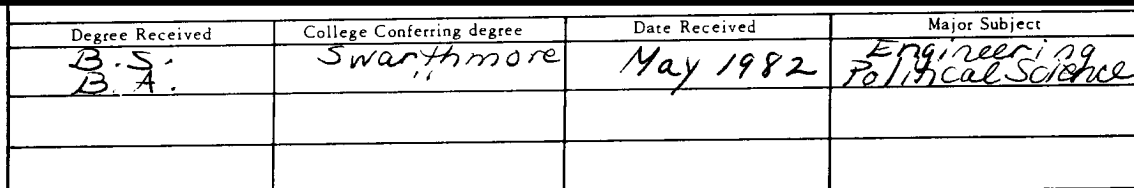 Degree Received College Conferring degree Date Received Major Subject
B.S. Swarthmore May 1982 Engineering
B.A. " Political Science